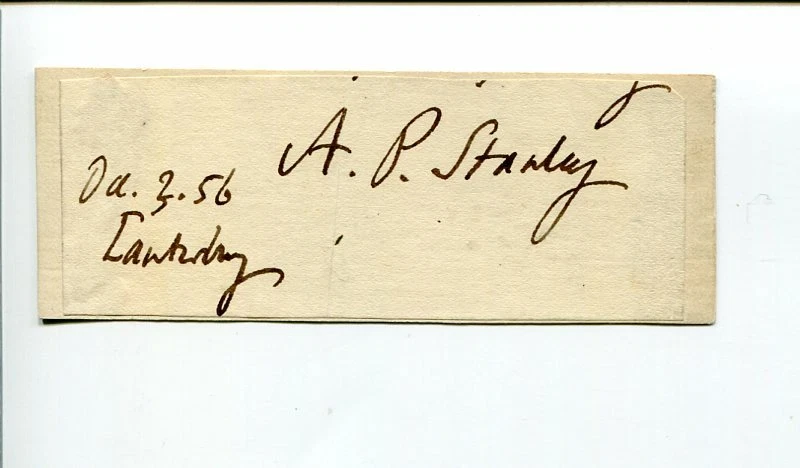 A. P. Stanley
Oct. 3. 56
Canterbury